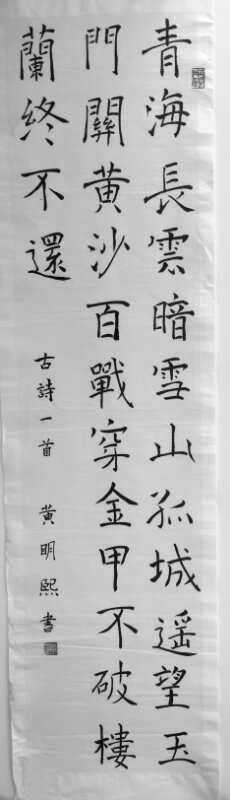 青海長雲暗雪山孤城遥望玉
門關黃沙百戰穿金甲不破樓
蘭終不還
古詩一首 黃明熙書